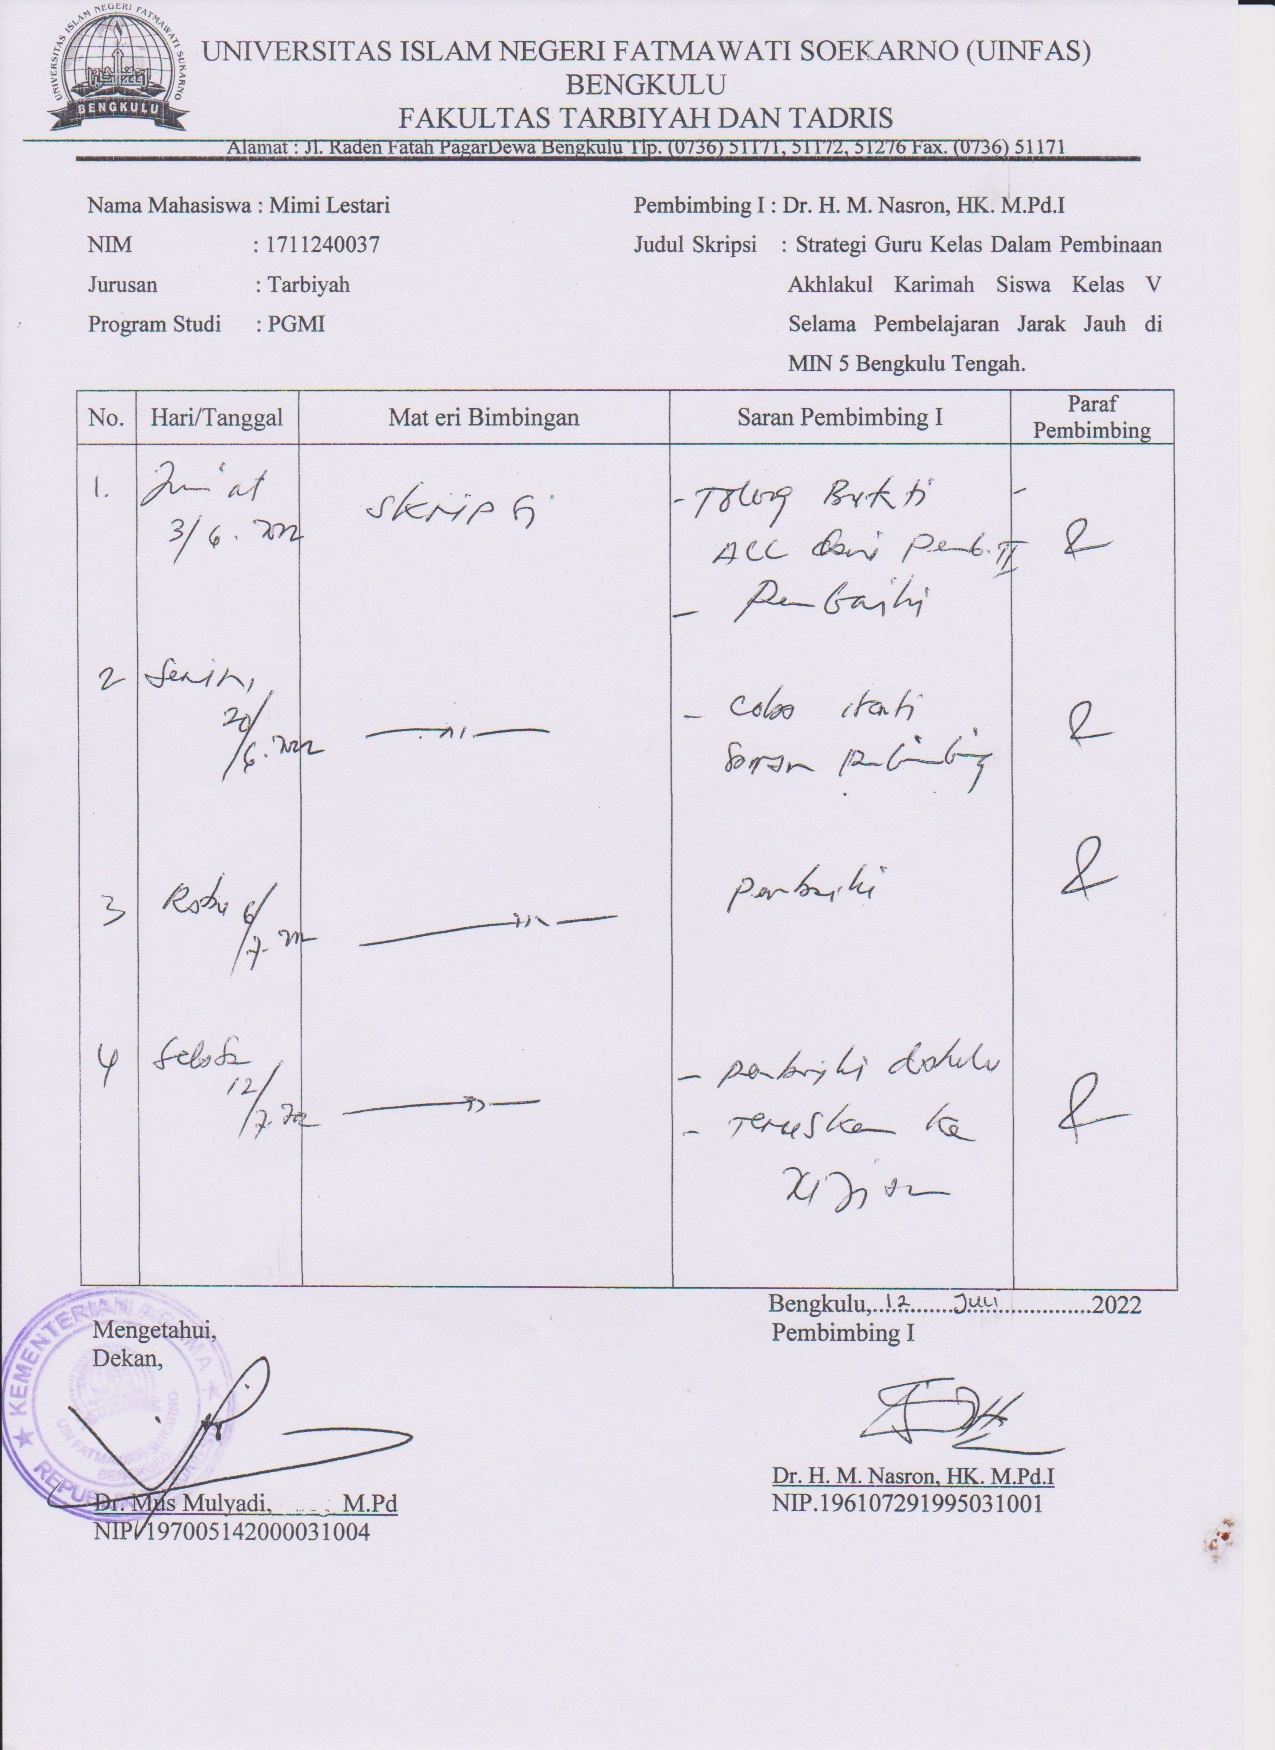 UNIVERSITAS ISLAM NEGERI FATMAWATI SUKARNO
BENGKULU
UNIVERSITAS ISLAM NEGERI FATMAWATI SOEKARNO (UINFAS)
BENGKULU
FAKULTAS TARBIYAH DAN TADRIS
Alamat : Jl. Raden Fatah PagarDewa Bengkulu Tlp. (0736) 51171, 51172, 51276 Fax. (0736) 51171
Nama Mahasiswa : Mimi Lestari
NIM : 1711240037
Jurusan : Tarbiyah
Program Studi : PGMI
Pembimbing I : Dr. H. M. Nasron, HK. M.Pd.I
Judul Skripsi : Strategi Guru Kelas Dalam Pembinaan
Akhlakul Karimah Siswa Kelas V
Selama Pembelajaran Jarak Jauh di
MIN 5 Bengkulu Tengah.
No. Hari/Tanggal Mat eri Bimbingan Saran Pembimbing I Paraf Pembimbing
1. Jum'at skripsi - Tolong Bukti
3/6.2022 ACC dari Pemb. II
- Perbaiki
2 Senin, - coba ikuti
20/6.2022 saran pembimbing
3 Rabu 6/7.22 perbaiki
4 Selasa - perbaiki dahulu
12/7.22 - Teruskan ke
Bengkulu, 12 Juli 2022
Pembimbing I
Mengetahui,
Dekan,
KEMENTERIAN AGAMA
REPUBLIK
Dr. Mus Mulyadi, M.Pd
NIP.197005142000031004
Dr. H. M. Nasron, HK. M.Pd.I
NIP.196107291995031001